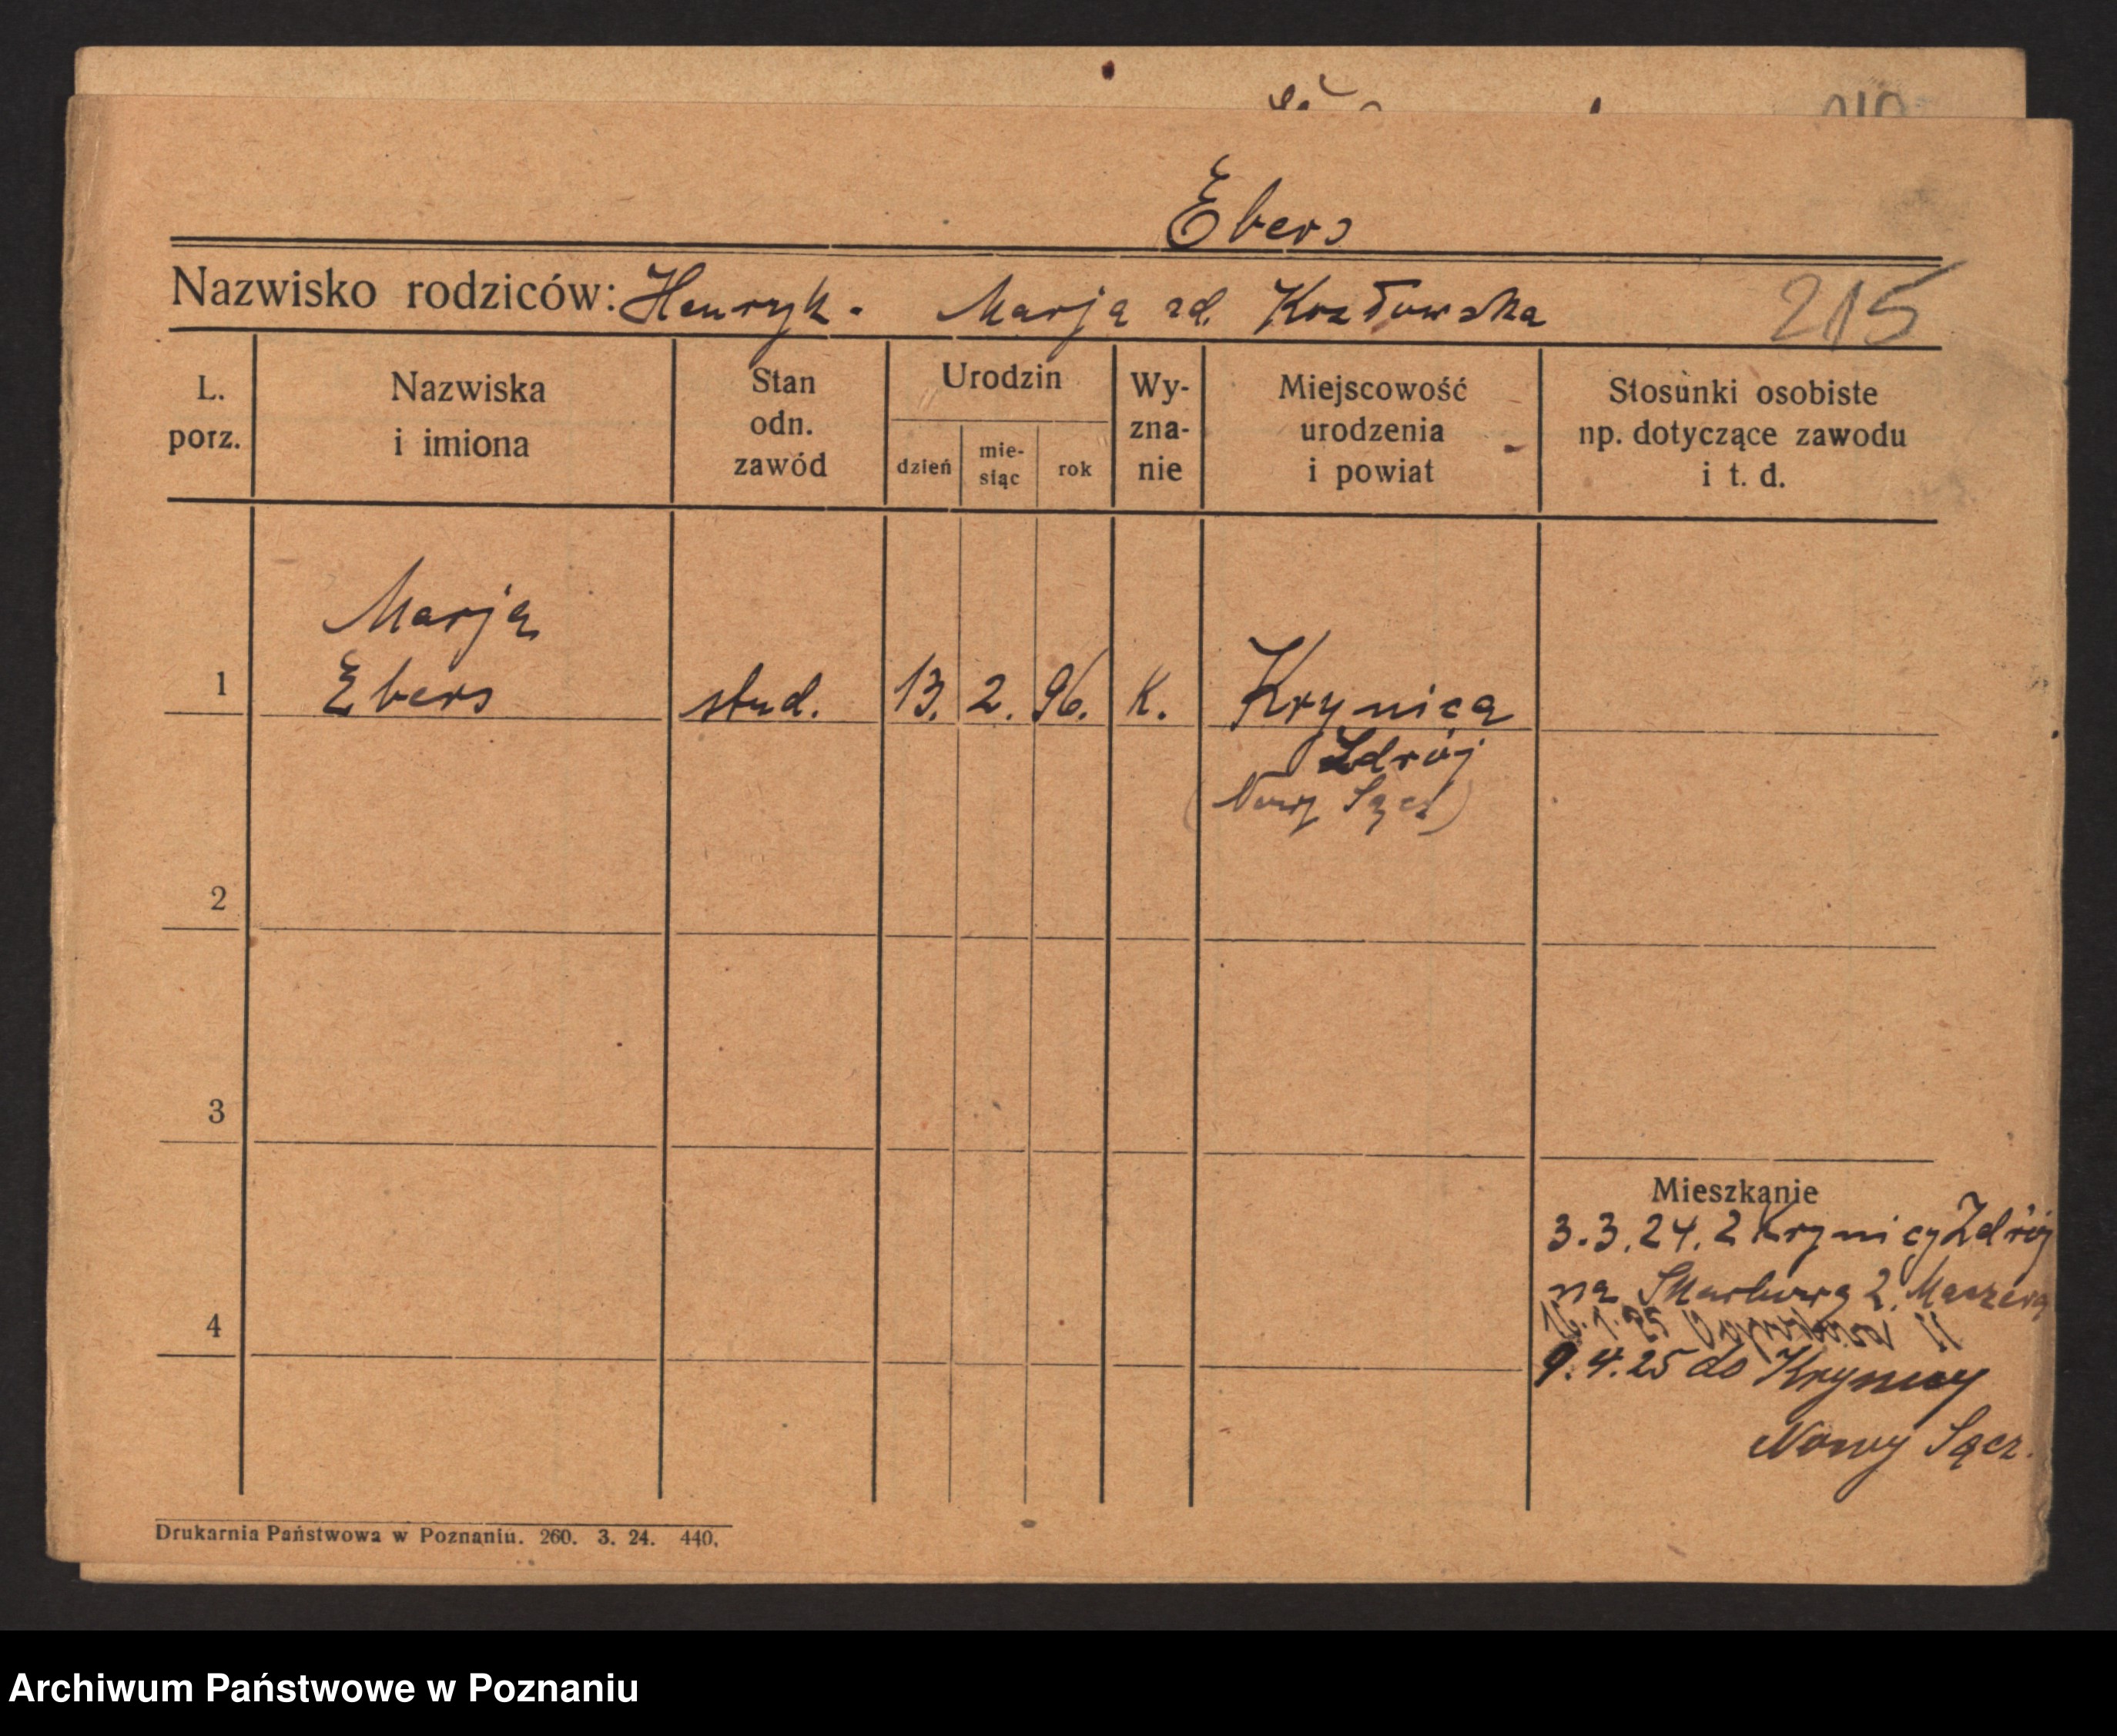 Ebers
Nazwisko rodziców: Henryk. Marja zd. Kozłowska 215
L. porz.
Nazwiska i imiona
Stan odn. zawód
Urodzin
dzień
miesiąc
rok
Wy-
zna-
nie
Miejscowość
urodzenia
i powiat
Stosunki osobiste
np. dotyczące zawodu
i t. d.
Marja
1 Ebers stud. 13. 2. 96. K. Krynica
Zdrój
(Nowy Sącz)
2
3
Mieszkanie
3.3.24. z Krynicy Zdrój
na
16.1.25
4
9.4.25 do Krynicy
Nowy Sącz.
Drukarnia Państwowa w Poznaniu. 260. 3. 24. 440.
Archiwum Państwowe w Poznaniu